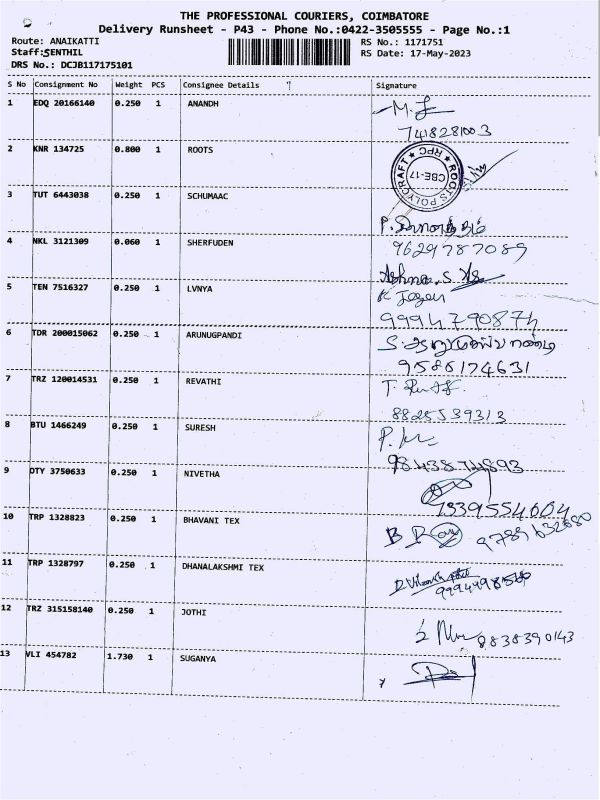 THE PROFESSIONAL COURIERS, COIMBATORE
Delivery Runsheet - P43 - Phone No.:0422-3505555 - Page No.:1
Route: ANAIKATTI RS No.: 1171751
Staff:SENTHIL RS Date: 17-May-2023
DRS No.: DCJB117175101
S No Consignment No Weight PCS Consignee Details Signature
1 EDQ 20166140 0.250 1 ANANDH
7418281003
2 KNR 134725 0.800 1 ROOTS
ROOTS POLYCRAFT RPC CBE-17
3 TUT 6443038 0.250 1 SCHUMAAC
9629787089
4 NKL 3121309 0.060 1 SHERFUDEN
5 TEN 7516327 0.250 1 LVNYA
9994790874
6 TDR 200015062 0.250 1 ARUNUGPANDI
9586174631
7 TRZ 120014531 0.250 1 REVATHI
8825539313
8 BTU 1466249 0.250 1 SURESH
9843874893
9 OTY 3750633 0.250 1 NIVETHA
10 TRP 1328823 0.250 1 BHAVANI TEX
9789632680
11 TRP 1328797 0.250 1 DHANALAKSHMI TEX
12 TRZ 315158140 0.250 1 JOTHI
9838390143
13 VLI 454782 1.730 1 SUGANYA